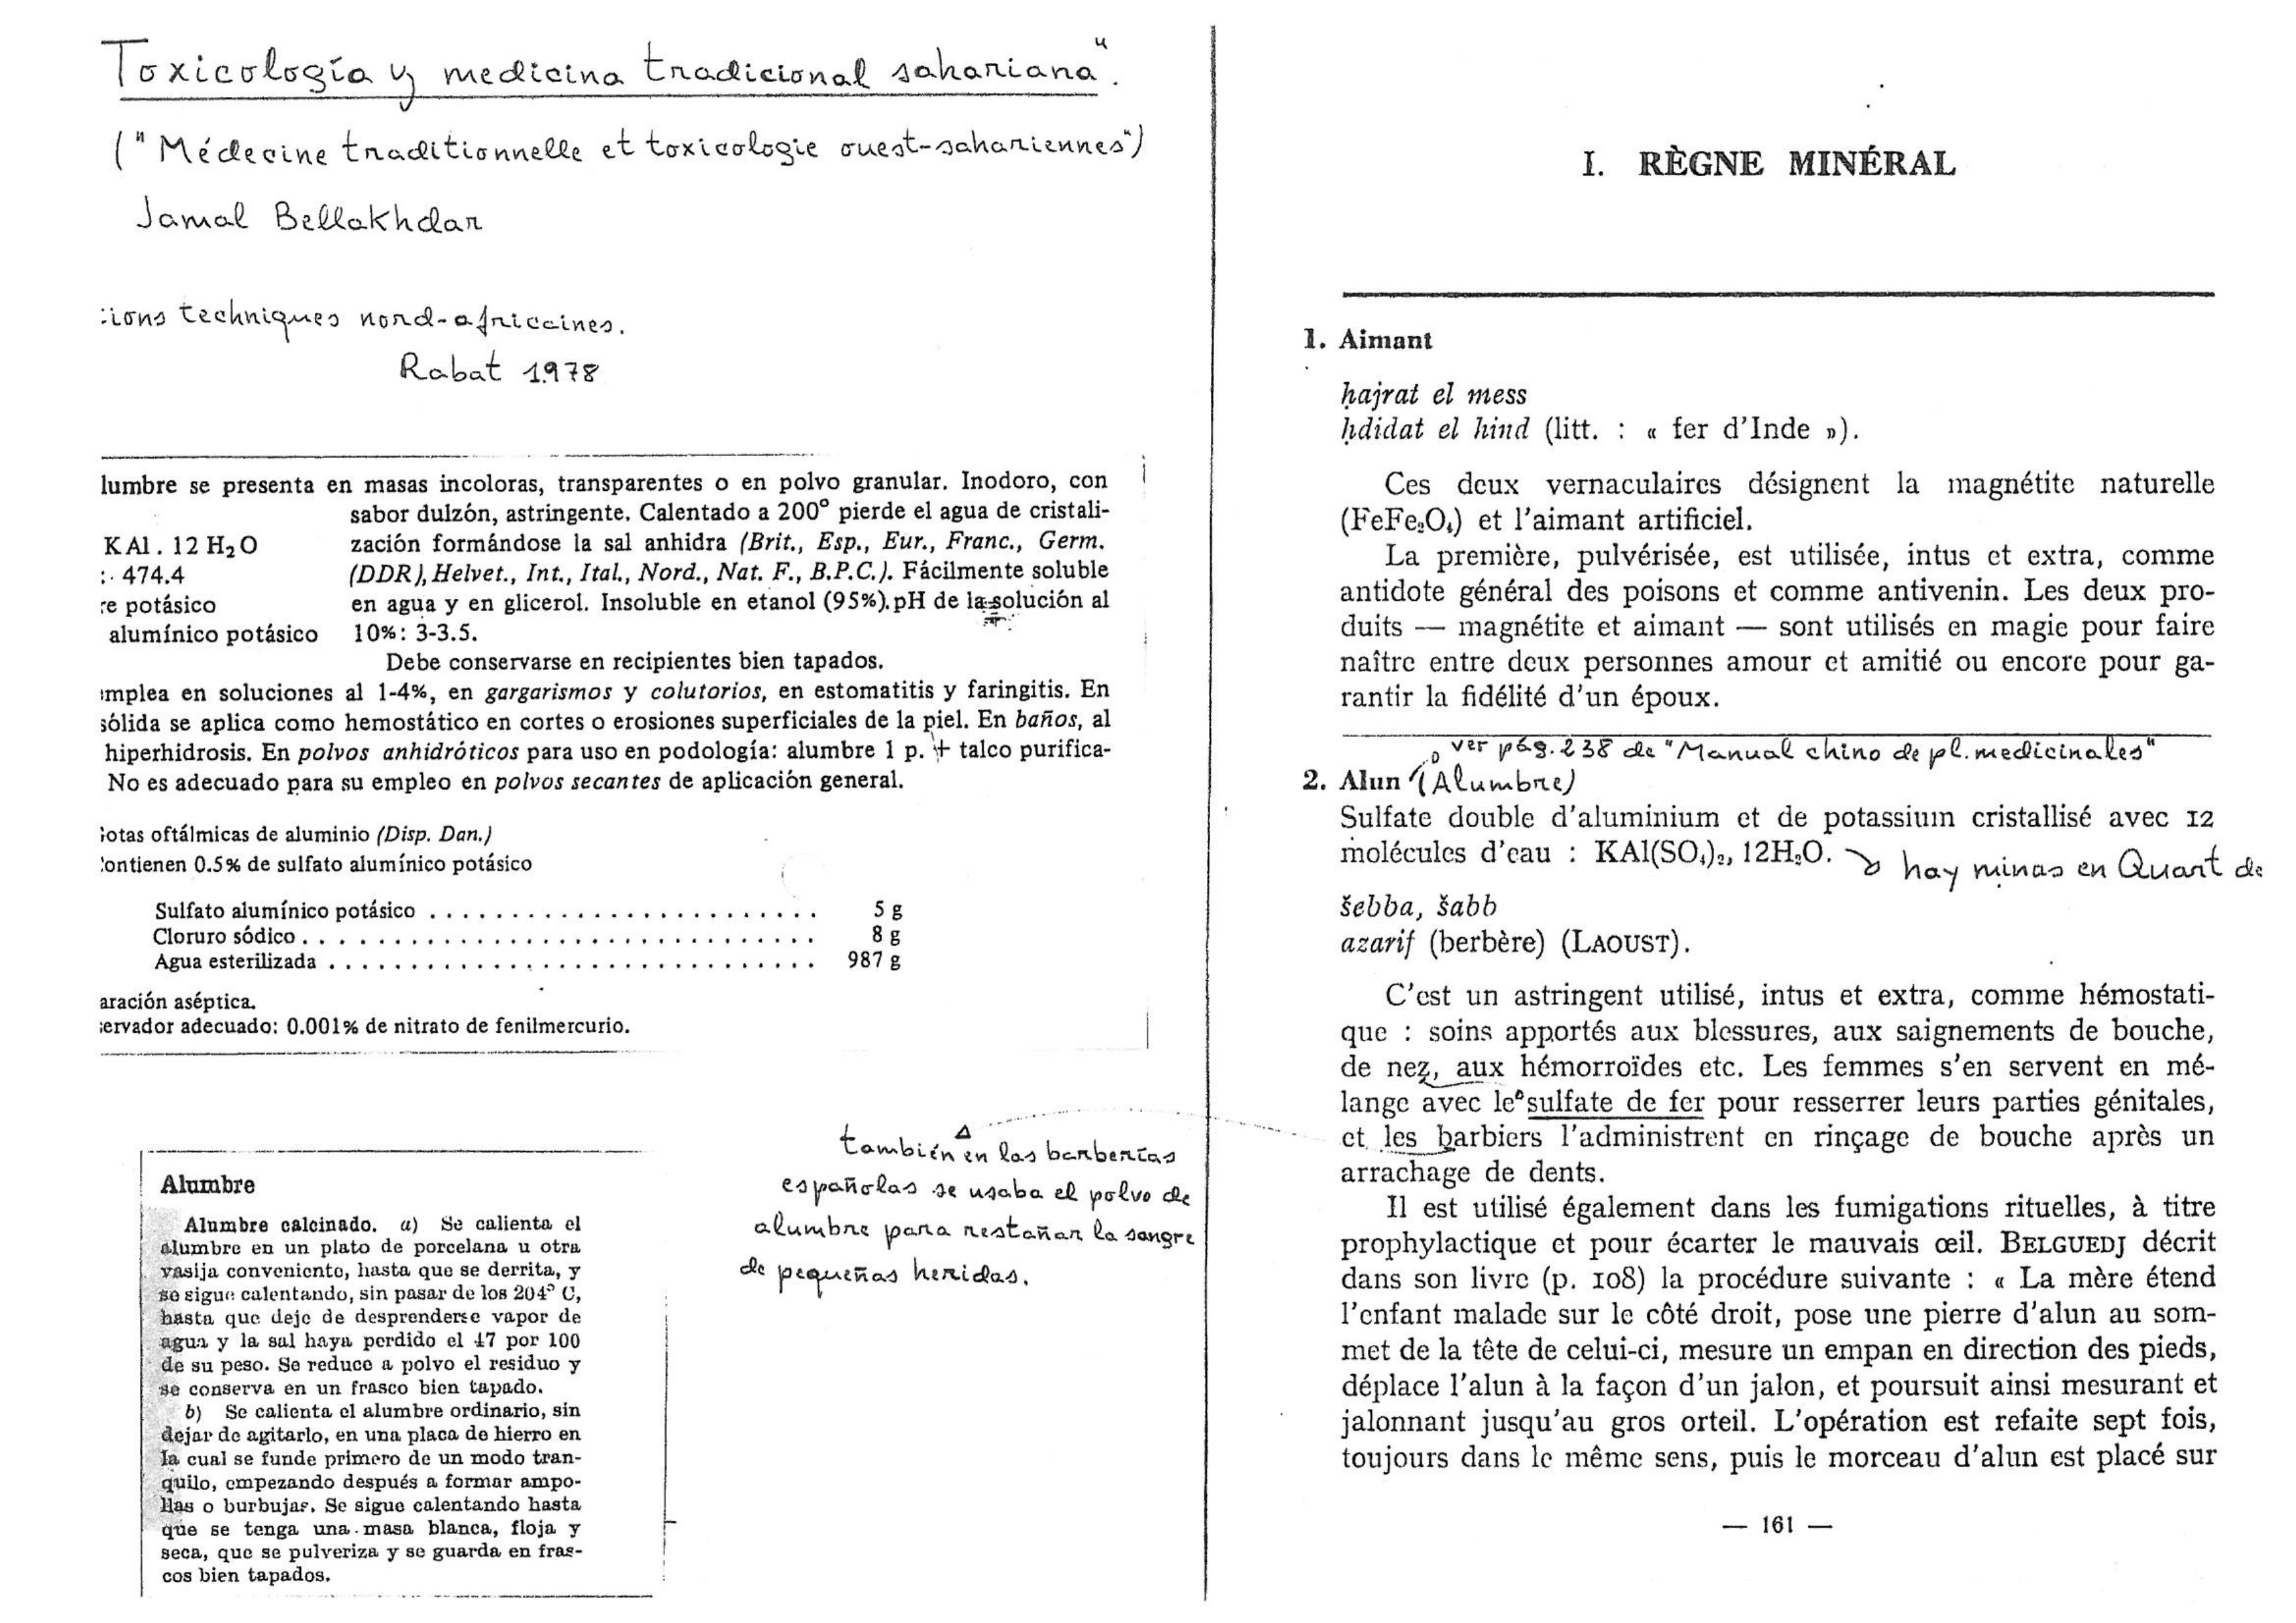 Toxicología y medicina tradicional sahariana".
("Médecine traditionnelle et toxicologie ouest-sahariennes")
Jamal Bellakhdar
ions techniques nord-africaines.
Rabat 1978
lumbre se presenta en masas incoloras, transparentes o en polvo granular. Inodoro, con
sabor dulzón, astringente. Calentado a 200° pierde el agua de cristali-
KAl . 12 H₂O zación formándose la sal anhidra (Brit., Esp., Eur., Franc., Germ.
: 474.4 (DDR), Helvet., Int., Ital., Nord., Nat. F., B.P.C.). Fácilmente soluble
re potásico en agua y en glicerol. Insoluble en etanol (95%). pH de la solución al
alumínico potásico 10%: 3-3.5.
Debe conservarse en recipientes bien tapados.
mplea en soluciones al 1-4%, en gargarismos y colutorios, en estomatitis y faringitis. En
sólida se aplica como hemostático en cortes o erosiones superficiales de la piel. En baños, al
hiperhidrosis. En polvos anhidróticos para uso en podología: alumbre 1 p. + talco purifica-
No es adecuado para su empleo en polvos secantes de aplicación general.
Gotas oftálmicas de aluminio (Disp. Dan.)
Contienen 0.5% de sulfato alumínico potásico
Sulfato alumínico potásico . . . . . . . . . . . . . . . . . . . . . . . . 5 g
Cloruro sódico . . . . . . . . . . . . . . . . . . . . . . . . . . . . . . . 8 g
Agua esterilizada . . . . . . . . . . . . . . . . . . . . . . . . . . . . . 987 g
aración aséptica.
servador adecuado: 0.001% de nitrato de fenilmercurio.
también en las barberías
españolas se usaba el polvo de
alumbre para restañar la sangre
de pequeñas heridas.
Alumbre
Alumbre calcinado. a) Se calienta el
alumbre en un plato de porcelana u otra
vasija conveniente, hasta que se derrita, y
se sigue calentando, sin pasar de los 204° C,
hasta que deje de desprenderse vapor de
agua y la sal haya perdido el 47 por 100
de su peso. Se reduce a polvo el residuo y
se conserva en un frasco bien tapado.
b) Se calienta el alumbre ordinario, sin
dejar de agitarlo, en una placa de hierro en
la cual se funde primero de un modo tran-
quilo, empezando después a formar ampo-
llas o burbujas. Se sigue calentando hasta
que se tenga una masa blanca, floja y
seca, que se pulveriza y se guarda en fras-
cos bien tapados.
I. RÈGNE MINÉRAL
1. Aimant
ḥajrat el mess
ḥdidat el hind (litt. : « fer d'Inde »).
Ces deux vernaculaires désignent la magnétite naturelle
(FeFe₂O₄) et l'aimant artificiel.
La première, pulvérisée, est utilisée, intus et extra, comme
antidote général des poisons et comme antivenin. Les deux pro-
duits — magnétite et aimant — sont utilisés en magie pour faire
naître entre deux personnes amour et amitié ou encore pour ga-
rantir la fidélité d'un époux.
ver pág. 238 de "Manual chino de pl. medicinales"
2. Alun (Alumbre)
Sulfate double d'aluminium et de potassium cristallisé avec 12
molécules d'eau : KAl(SO₄)₂, 12H₂O. hay minas en Quart de
šebba, šabb
azarif (berbère) (LAOUST).
C'est un astringent utilisé, intus et extra, comme hémostati-
que : soins apportés aux blessures, aux saignements de bouche,
de nez, aux hémorroïdes etc. Les femmes s'en servent en mé-
lange avec le sulfate de fer pour resserrer leurs parties génitales,
et les barbiers l'administrent en rinçage de bouche après un
arrachage de dents.
Il est utilisé également dans les fumigations rituelles, à titre
prophylactique et pour écarter le mauvais œil. BELGUEDJ décrit
dans son livre (p. 108) la procédure suivante : « La mère étend
l'enfant malade sur le côté droit, pose une pierre d'alun au som-
met de la tête de celui-ci, mesure un empan en direction des pieds,
déplace l'alun à la façon d'un jalon, et poursuit ainsi mesurant et
jalonnant jusqu'au gros orteil. L'opération est refaite sept fois,
toujours dans le même sens, puis le morceau d'alun est placé sur
— 161 —